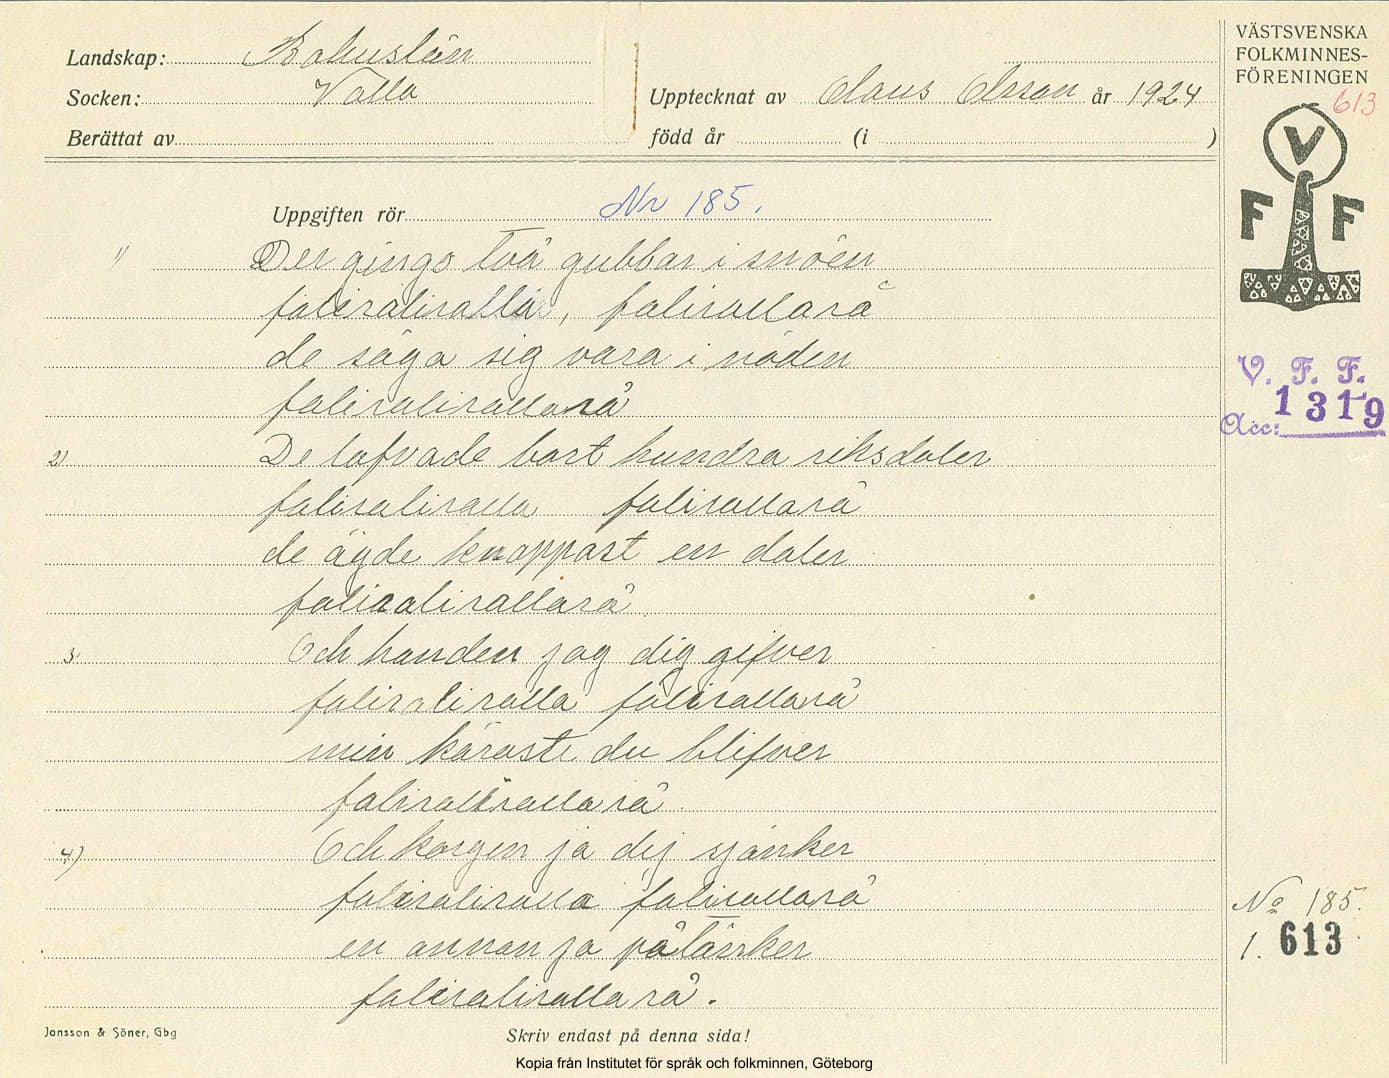 Landskap: Bohuslän
Socken: Valla
Upptecknat av Claus Olsson år 1924
Berättat av
född år (i )
VÄSTSVENSKA
FOLKMINNES-
FÖRENINGEN
613
V
F F
V. F. F.
Acc: 1319
Uppgiften rör Nr 185.
1) Der gingo två gubbar i snöen
faliraliralla, falirallarà
de säga sig vara i nöden
faliralirallarà
2) De lofvade bort hundra riksdaler
faliraliralla falirallarà
de ägde knappast en daler
faliralirallarà
3 Och handen jag dig gifver
faliraliralla falirallarà
min käraste du blifver
faliralirallarà
4) Och korgen ja dej sjänker
faliraliralla falirallarà
en annan ja påtänker
faliralirallarà.
No 185.
1. 613
Jonsson & Söner, Gbg
Skriv endast på denna sida!
Kopia från Institutet för språk och folkminnen, Göteborg